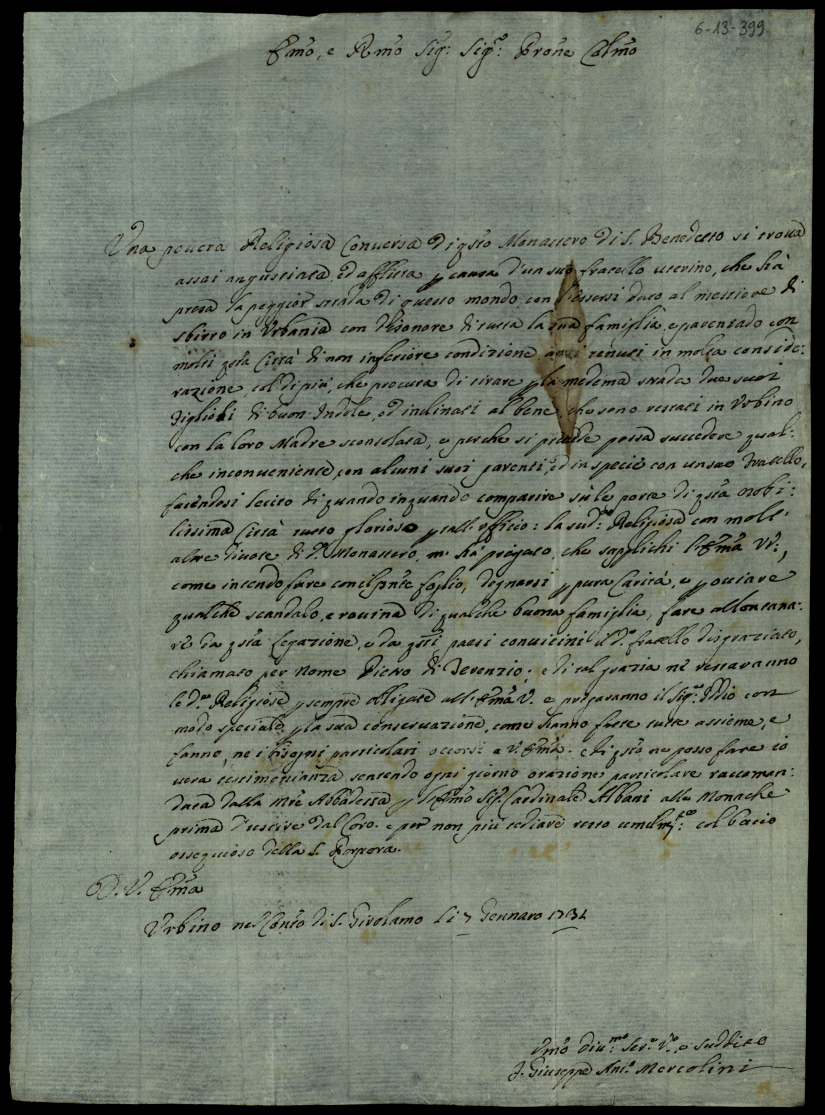 6-13-399
Emo, e Rmo Sig: Sig.re Prone Colmo
Una povera Religiosa Conversa di qsto Monastero di S. Benedetto si trova
assai angustiata, ed afflitta p causa d'un suo fratello uterino, che hà
presa la peggior strada di questo mondo con l'essersi dato al mestiere di
sbirro in Urbania con disonore di tutta la sua famiglia, e parentado con
molti qsta Città di non inferiore condizione anzi tenuti in molta conside:
razione, col di più, che procura di tirare p la medema strada due suoi
Figlioli di buon Indole, ed inclinati al bene, che sono restati in Urbino
con la loro Madre sconsolata, e perche si prevede possa succedere qual:
che inconveniente con alcuni suoi parenti, ed in specie con un suo Fratello,
facendosi lecito di quando in quando comparire sù le porte di qsta nobi:
lissima Città tutto glorioso p tall'officio: la sud.a Religiosa con molt'
altre divote di d.o Monastero, m'hà pregato, che supplichi l'Emza Vra,
come intendo fare con il pnte foglio, degnarsi p pura Carità, e p ovviare
qualche scandalo, e rovina di qualche buona famiglia, fare allontana:
re da qsta Legazione, e da qsti paesi convicini il d.o fratello disgraziato,
chiamato per nome Pietro di Terenzio; e di tal grazia ne restaranno
le d.e Religiose p sempre obligate all'Emza V. e pregaranno il Sig.re Iddio con
modo speciale p la sua conservazione, come hanno fatto tutte assieme, e
fanno, ne i bisogni particolari occorsi a V. Emza: e di qsto ne posso fare io
vera testimonianza sentendo ogni giorno orazione particolare raccoman:
data dalla Mre Abbadessa p l'Emo Sig. Cardinale Albani alle Monache
prima d'uscire dal Coro. e per non più tediare resto umilm.te col bacio
ossequioso della S. Porpora.
D. V. Emza
Urbino nel Conto di S. Girolamo li 7 Gennaro 1734
Umo Divmo Ser.e V.o, e suddito
F. Giuseppe Ant.o Mercolini